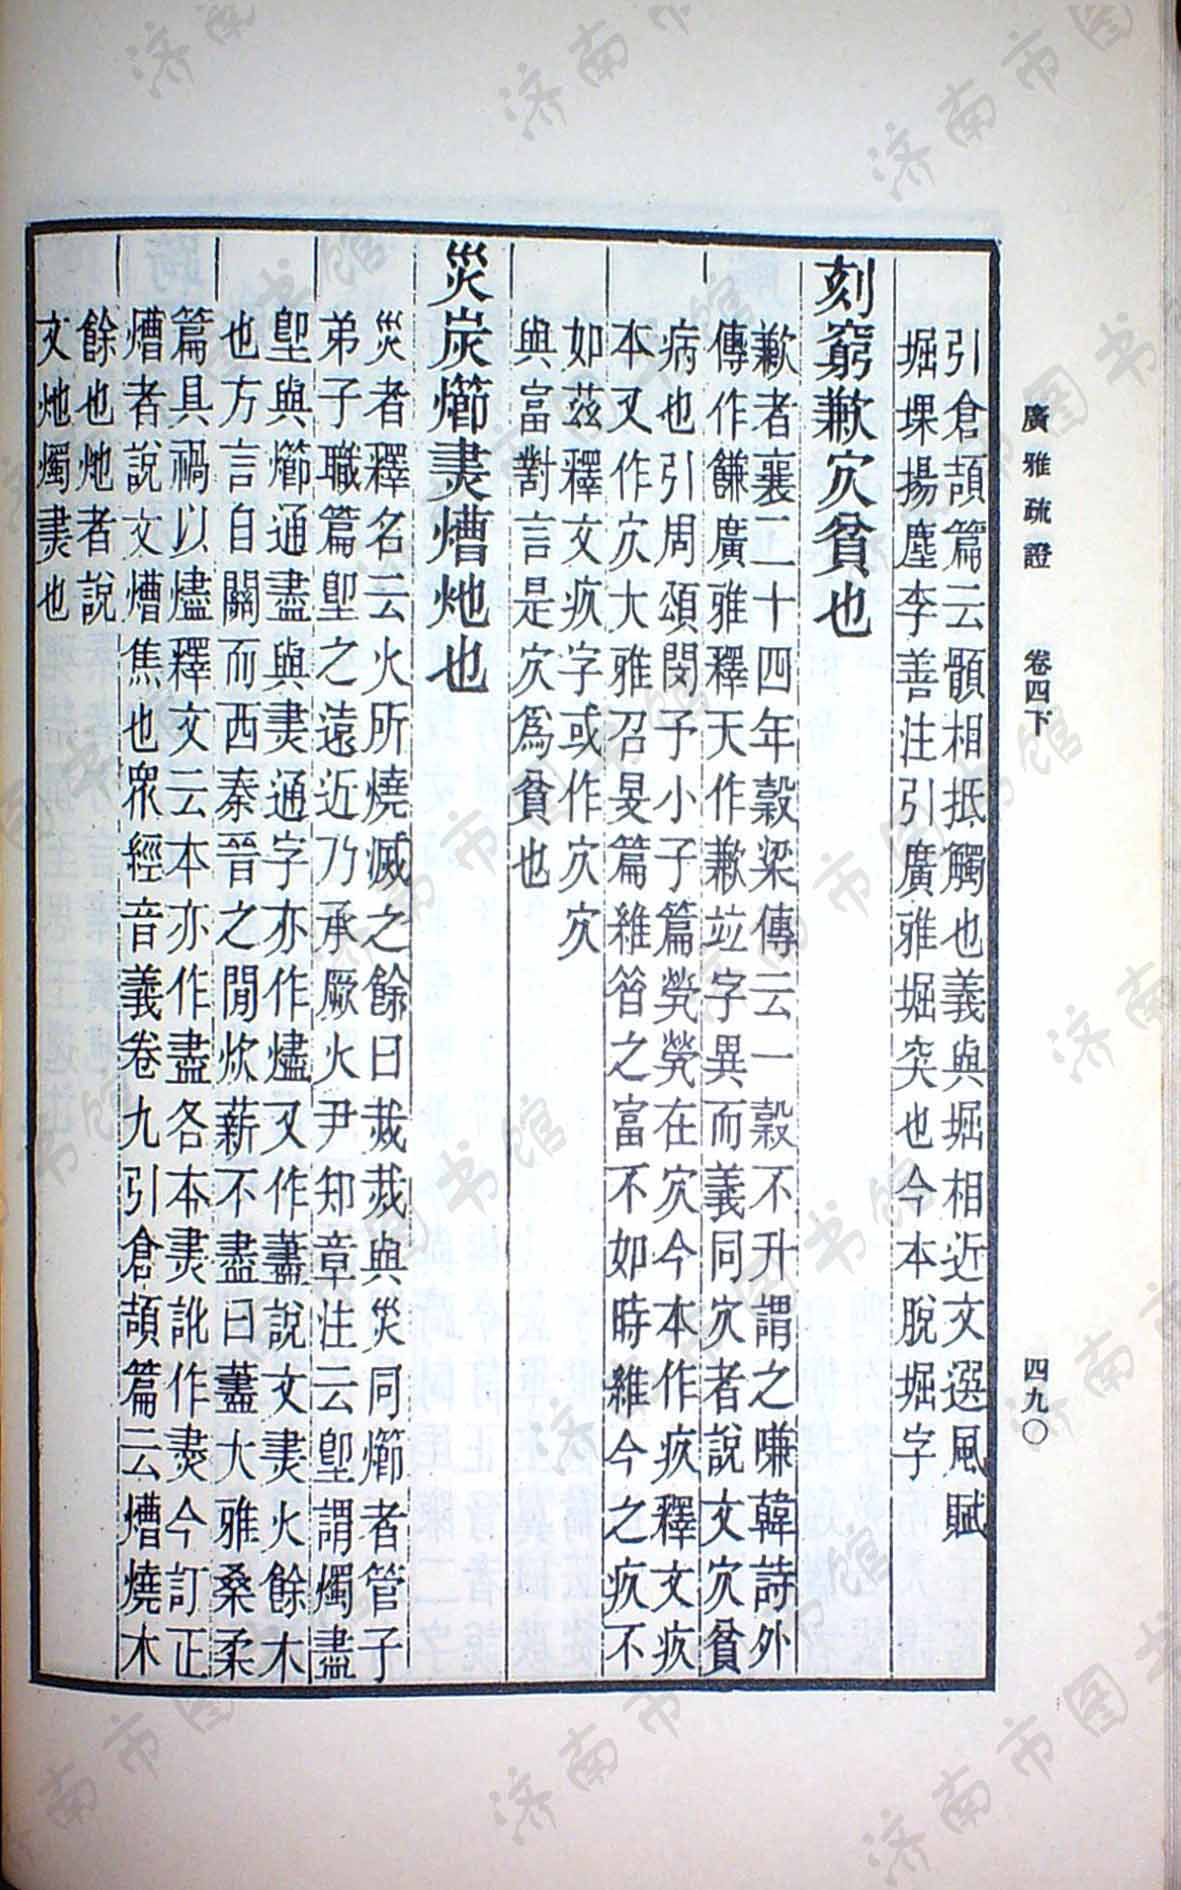 廣雅疏證 卷四下 四九〇
引倉頡篇云顝相抵觸也義與堀相近文選風賦
堀堁揚塵李善注引廣雅堀突也今本脫堀字
刻窮歉㝌貧也
歉者襄二十四年穀梁傳云一穀不升謂之嗛韓詩外
傳作䭑廣雅釋天作歉竝字異而義同㝌者說文㝌貧
病也引周頌閔予小子篇煢煢在㝌今本作疚釋文疚
本又作㝌大雅召旻篇維昝之富不如時維今之疚不
如茲釋文疚字或作㝌㝌
與富對言是㝌爲貧也
災炭㸅㶳㷮灺也
災者釋名云火所燒滅之餘曰烖烖與災同㸅者管子
弟子職篇堲之遠近乃承厥火尹知章注云堲謂燭盡
堲與㸅通盡與㶳通字亦作燼又作藎說文㶳火餘木
也方言自關而西秦晉之閒炊薪不盡曰藎大雅桑柔
篇具禍以燼釋文云本亦作盡各本㶳訛作㷄今訂正
㷮者說文㷮焦也眾經音義卷九引倉頡篇云㷮燒木
餘也灺者說
文灺燭㶳也